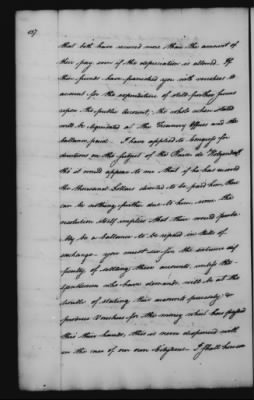 that both have received more than the amount of
their pay even if the depreciation is allowed. If
these friends have furnished you with vouchers to
account for the expenditure of still further sums
upon the public account, the whole when stated
will be liquidated at the Treasury Office and the
ballance paid. I have applied to Congress for
directions on the subject of the Baron de Holzendorff
tho it would appear to me that if he has received
the thousand Dollars directed to be paid him there
can be nothing further due to him, since the
resolution itself implies that there would proba-
bly be a ballance to be repaid in Bills of
exchange. you must see Sir the extreme dif-
ficulty of settling these accounts, unless the
Gentlemen who have demands will be at the
trouble of stating their accounts precisely &
produce Vouchers for the money which have passed
thro their hands, this is never dispensed with
in the case of our own Citizens. I shall however